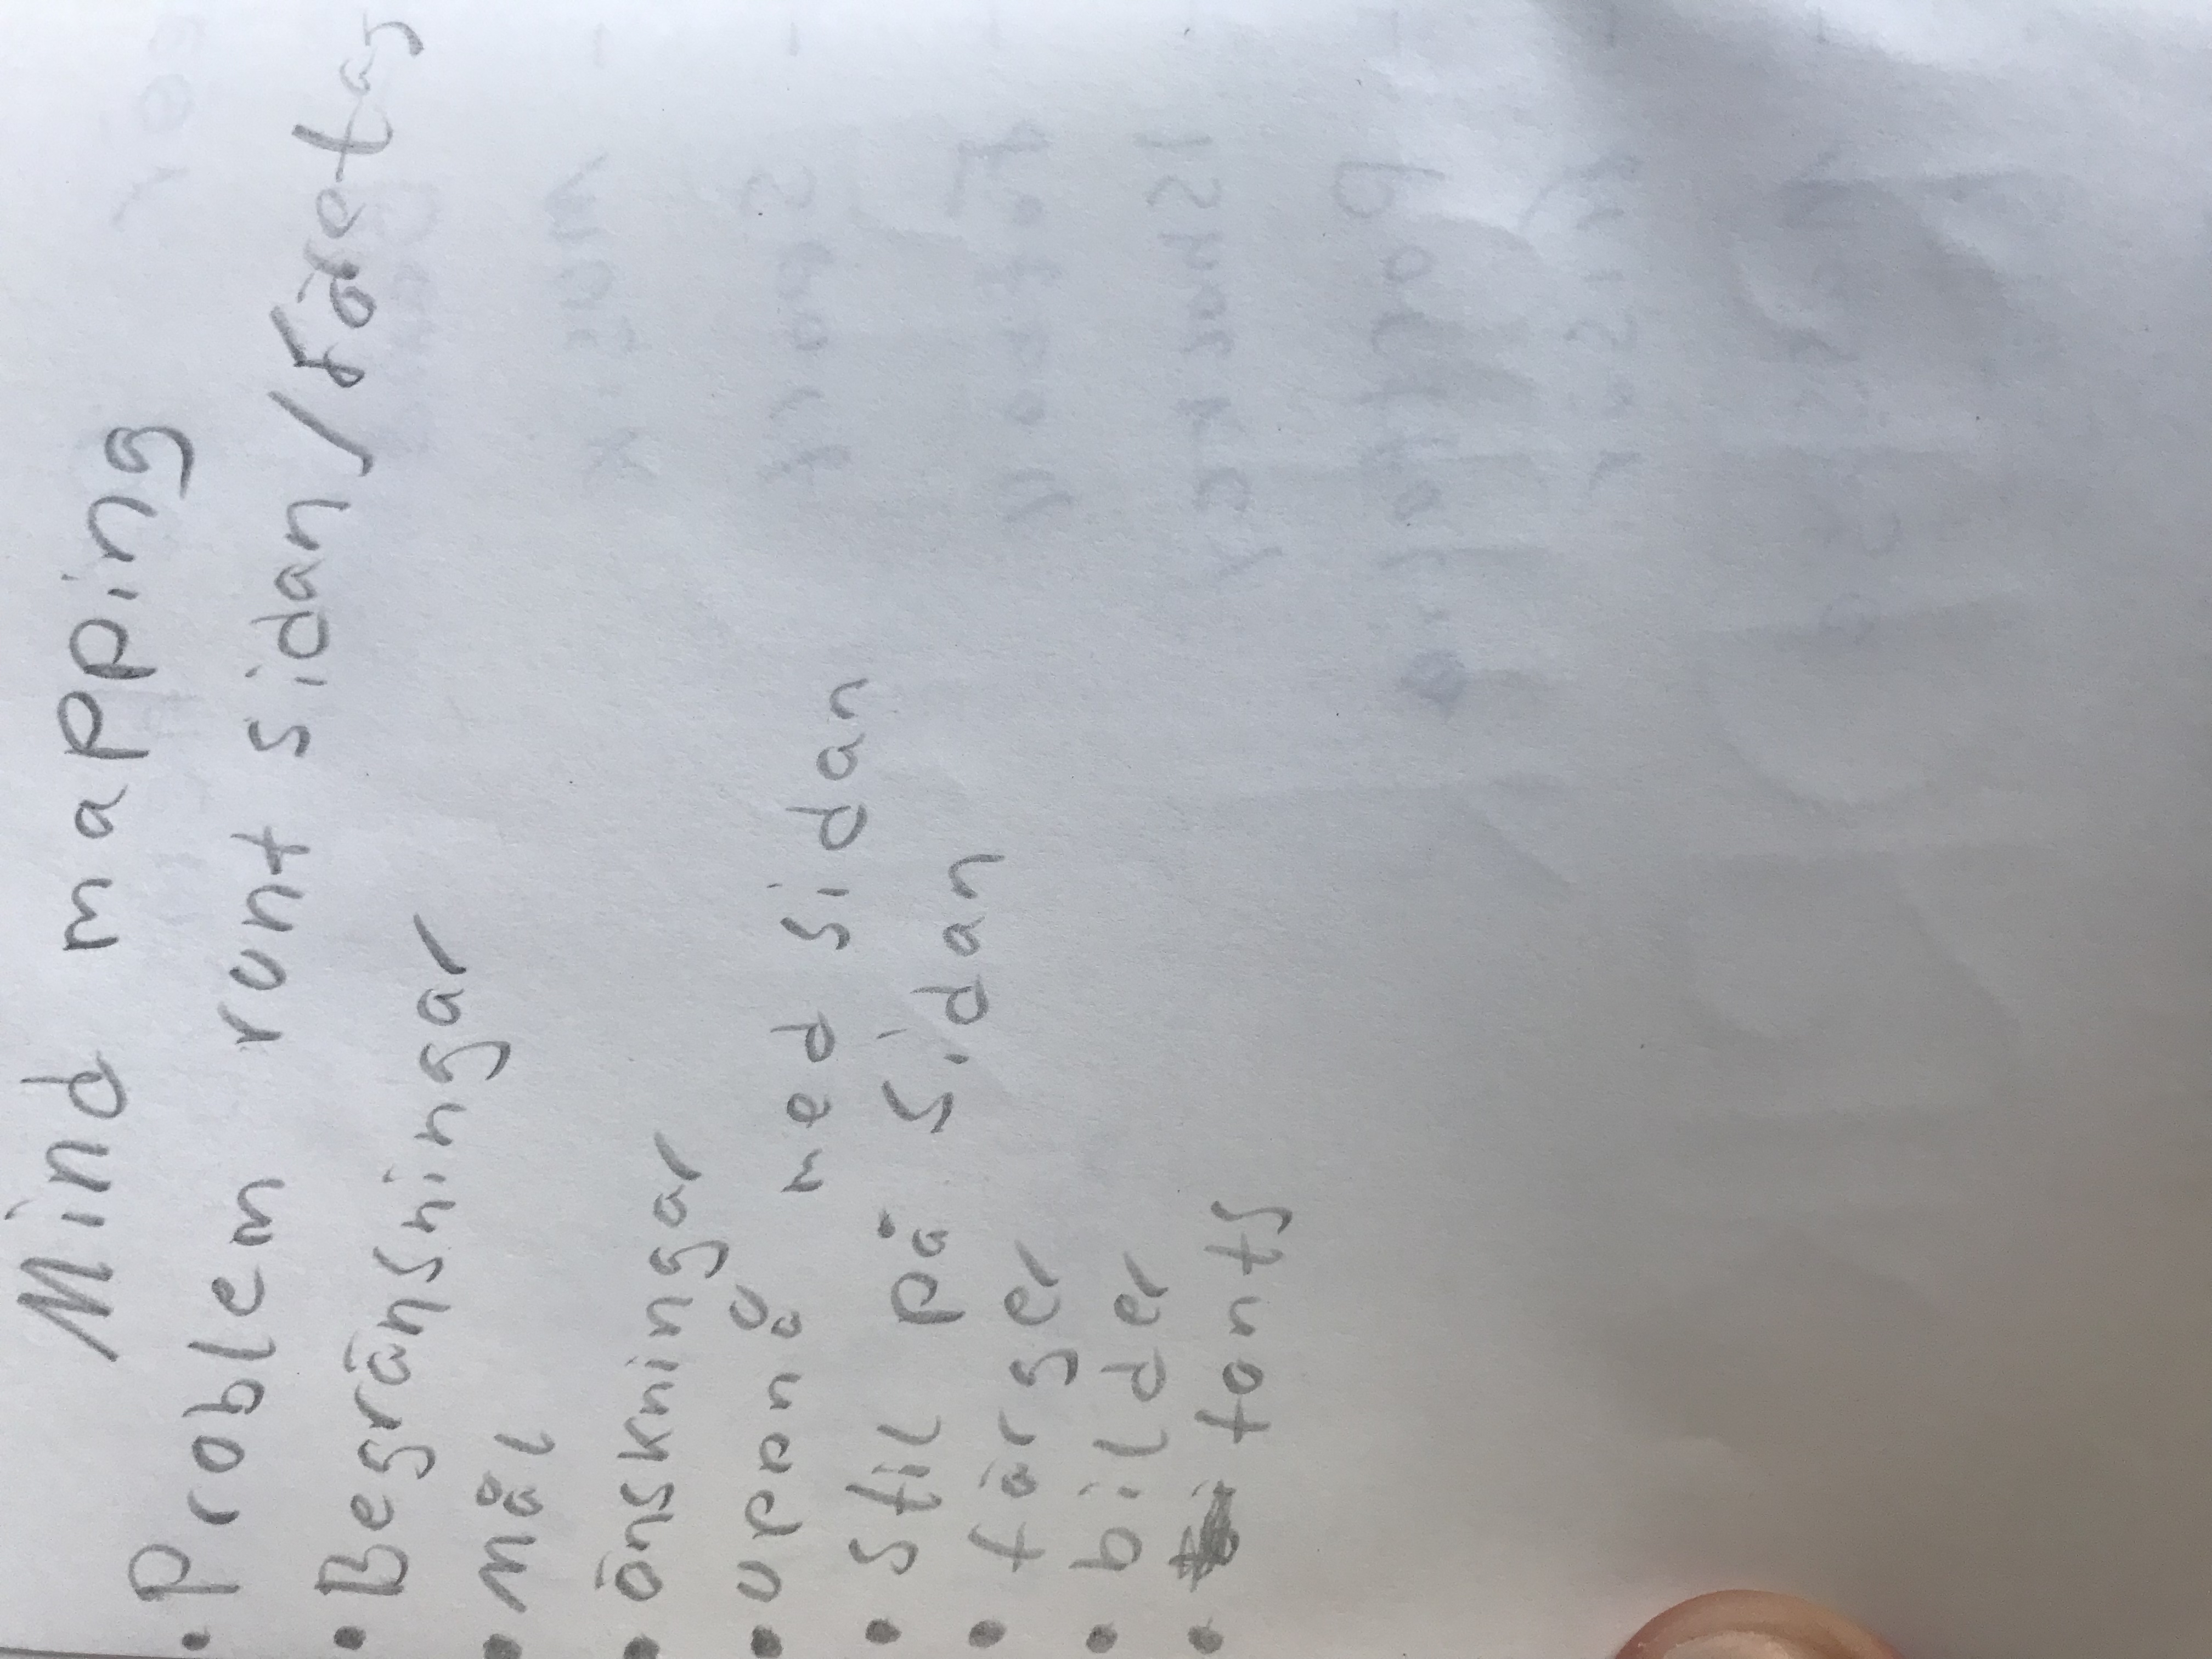 Mind mapping
• Problem runt sidan / Företag
• Begränsningar
• Mål
• önskningar
• uppnå med sidan
• Stil på sidan
• färger
• bilder
• fonts